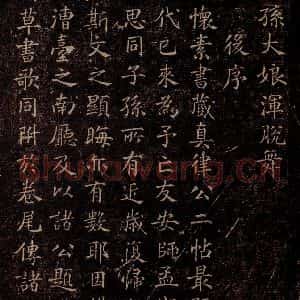 孫大娘渾脫舞
後序
懷素書藏真律公二帖最
代已來為予亡友安師孟
思同子孫所有近歲復歸
斯文之顯晦亦有數耶因
漕臺之南廳及以諸公題
草書歌同附於卷尾傳諸
Shufawang.cn